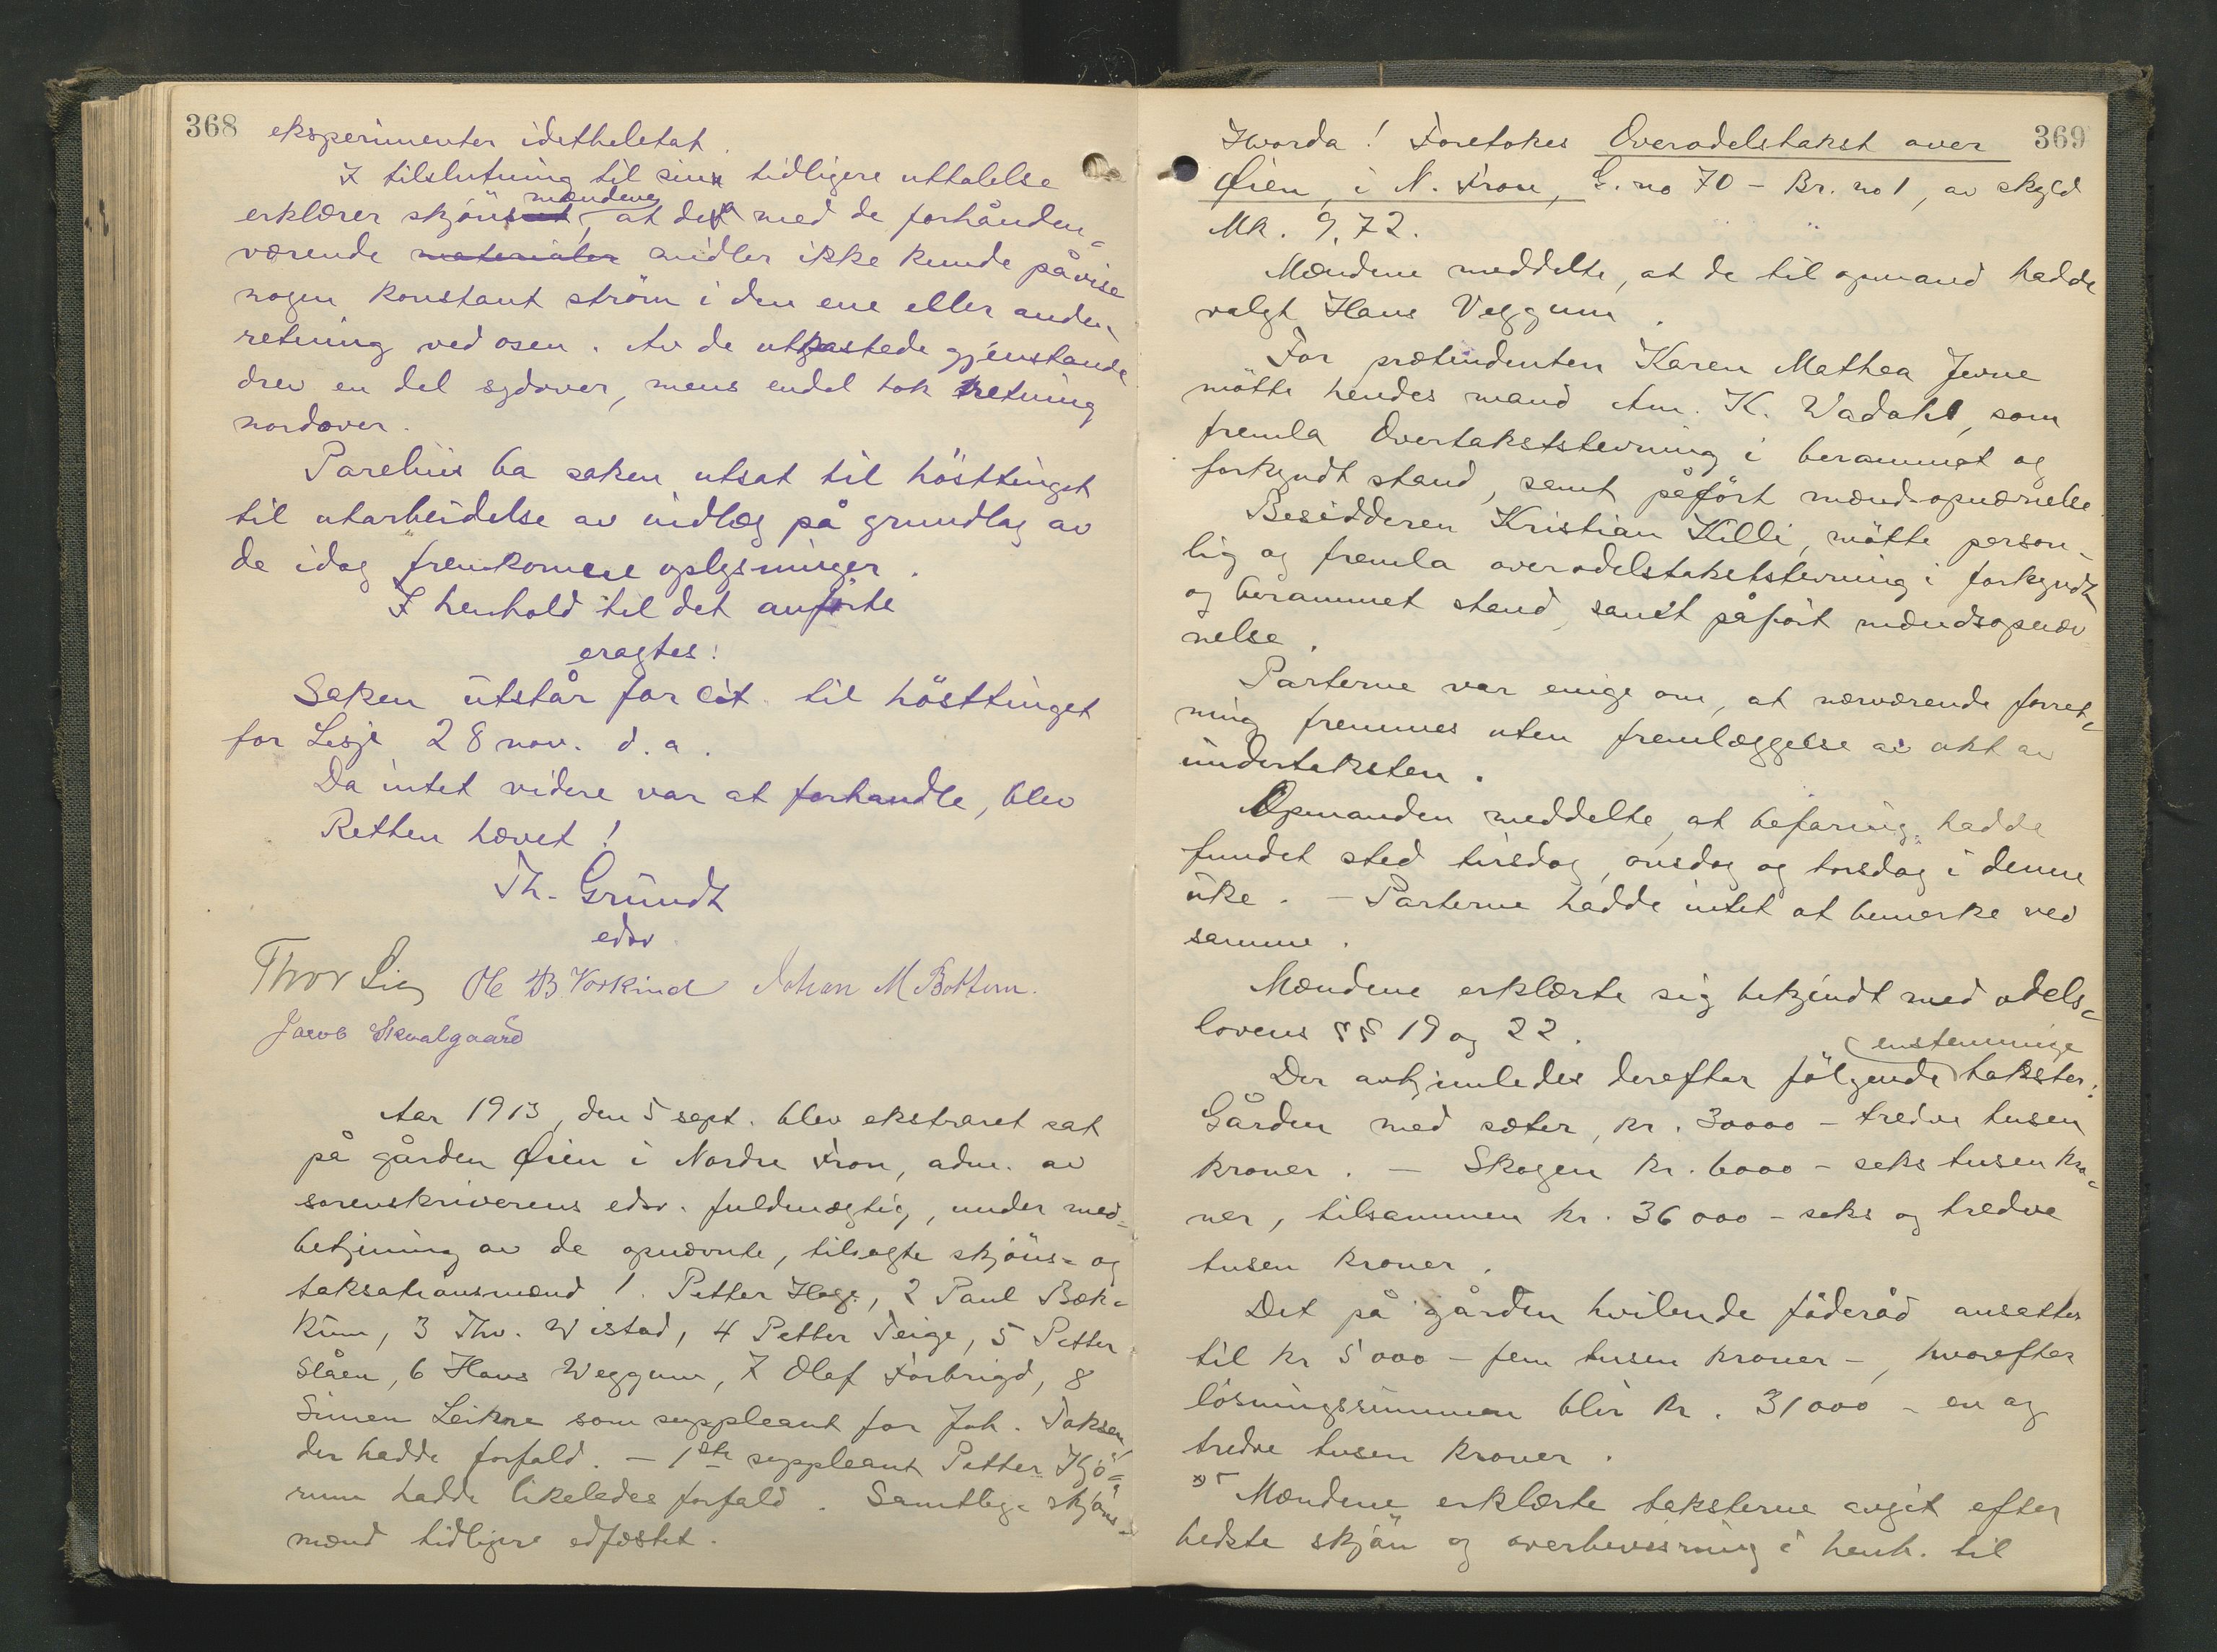 368
eksperimenter idetheletat.
I tilslutning til sine tidligere uttalelse
mændene
erklærer skjöns, at de med de forhånden-
værende materialer midler ikke kunde påvise
nogen konstant ström i den ene eller anden
retning ved osen. Av de utkastede gjenstande
drev en del sydover, mens endel tok retning
nordover.
Parelius ba saken utsat til hösttinget
til utarbeidelse av indlæg på grundlag av
de idag fremkomne oplysninger.
I henhold til det anförte
eragtes:
Saken utstår for cit. til hösttinget
for Lesje 28 nov. d. a.
Da intet videre var at forhandle, blev
Retten hævet!
Th. Gründt
edsv
Thor Lie Ole B. Vorkind Johan M Bottem.
Jacob Skvalgaard
Aar 1913, den 5 sept. blev ekstraret sat
på gården Øien i Nordre Fron, adm. av
sorenskriverens edsv. fuldmægtig, under med-
betjening av de opnævnte, tilsagte skjöns- og
taksationsmænd 1. Petter Hage, 2 Paul Bæk-
kum, 3 Thv. Wistad, 4 Petter Teige, 5 Petter
Slåen, 6 Hans Weggum, 7 Olaf Forbrigd, 8
Simen Leikne som suppleant for Joh. Toksen
der hadde forfald. - 1ste suppleant Petter Kjö-
rum hadde likeledes forfald. Samtlige skjöns-
mænd tidligere edfæstet.
369
Hvorda! Foretokes Overodelstakst over
Øien, i N. Fron, G. no 70 - Br. no 1, av skyld
Mk. 9,72.
Mændene meddelte, at de til opmand hadde
valgt Hans Veggum.
For prætendenten Karen Mathea Jevne
mötte hendes mand Am. K. Wadahl, som
fremla Overtakststevning i berammet og
forkyndt stand, samt påfört mændsopnævnelse.
Besidderen Kristian Killi, mötte person-
lig og fremla overodelstakststevning i forkyndt
og berammet stand, samt påfört mændsopnæv-
nelse.
Parterne var enige om, at nærværende forret-
ning fremmes uten fremlæggelse av akt av
undertaksten.
Opmanden meddelte, at befaring hadde
fundet sted tirsdag, onsdag og torsdag i denne
uke. - Parterne hadde intet at bemerke ved
samme.
Mændene erklærte sig bekjendt med odels-
lovens §§ 19 og 22.
enstemmige
Der avhjemledes derefter fölgende takster:
Gården med sæter, kr. 30000 - tredve tusen
kroner. - Skogen kr. 6000 - seks tusen kro-
ner, tilsammen kr. 36000 - seks og tredve
tusen kroner.
Det på gården hvilende föderåd ansættes
til kr 5000 - fem tusen kroner -, hvorefter
lösningssummen blir kr. 31000 - en og
tredve tusen kroner.
Mændene erklærte taksterne avgit efter
bedste skjön og overbevisning i henh. til